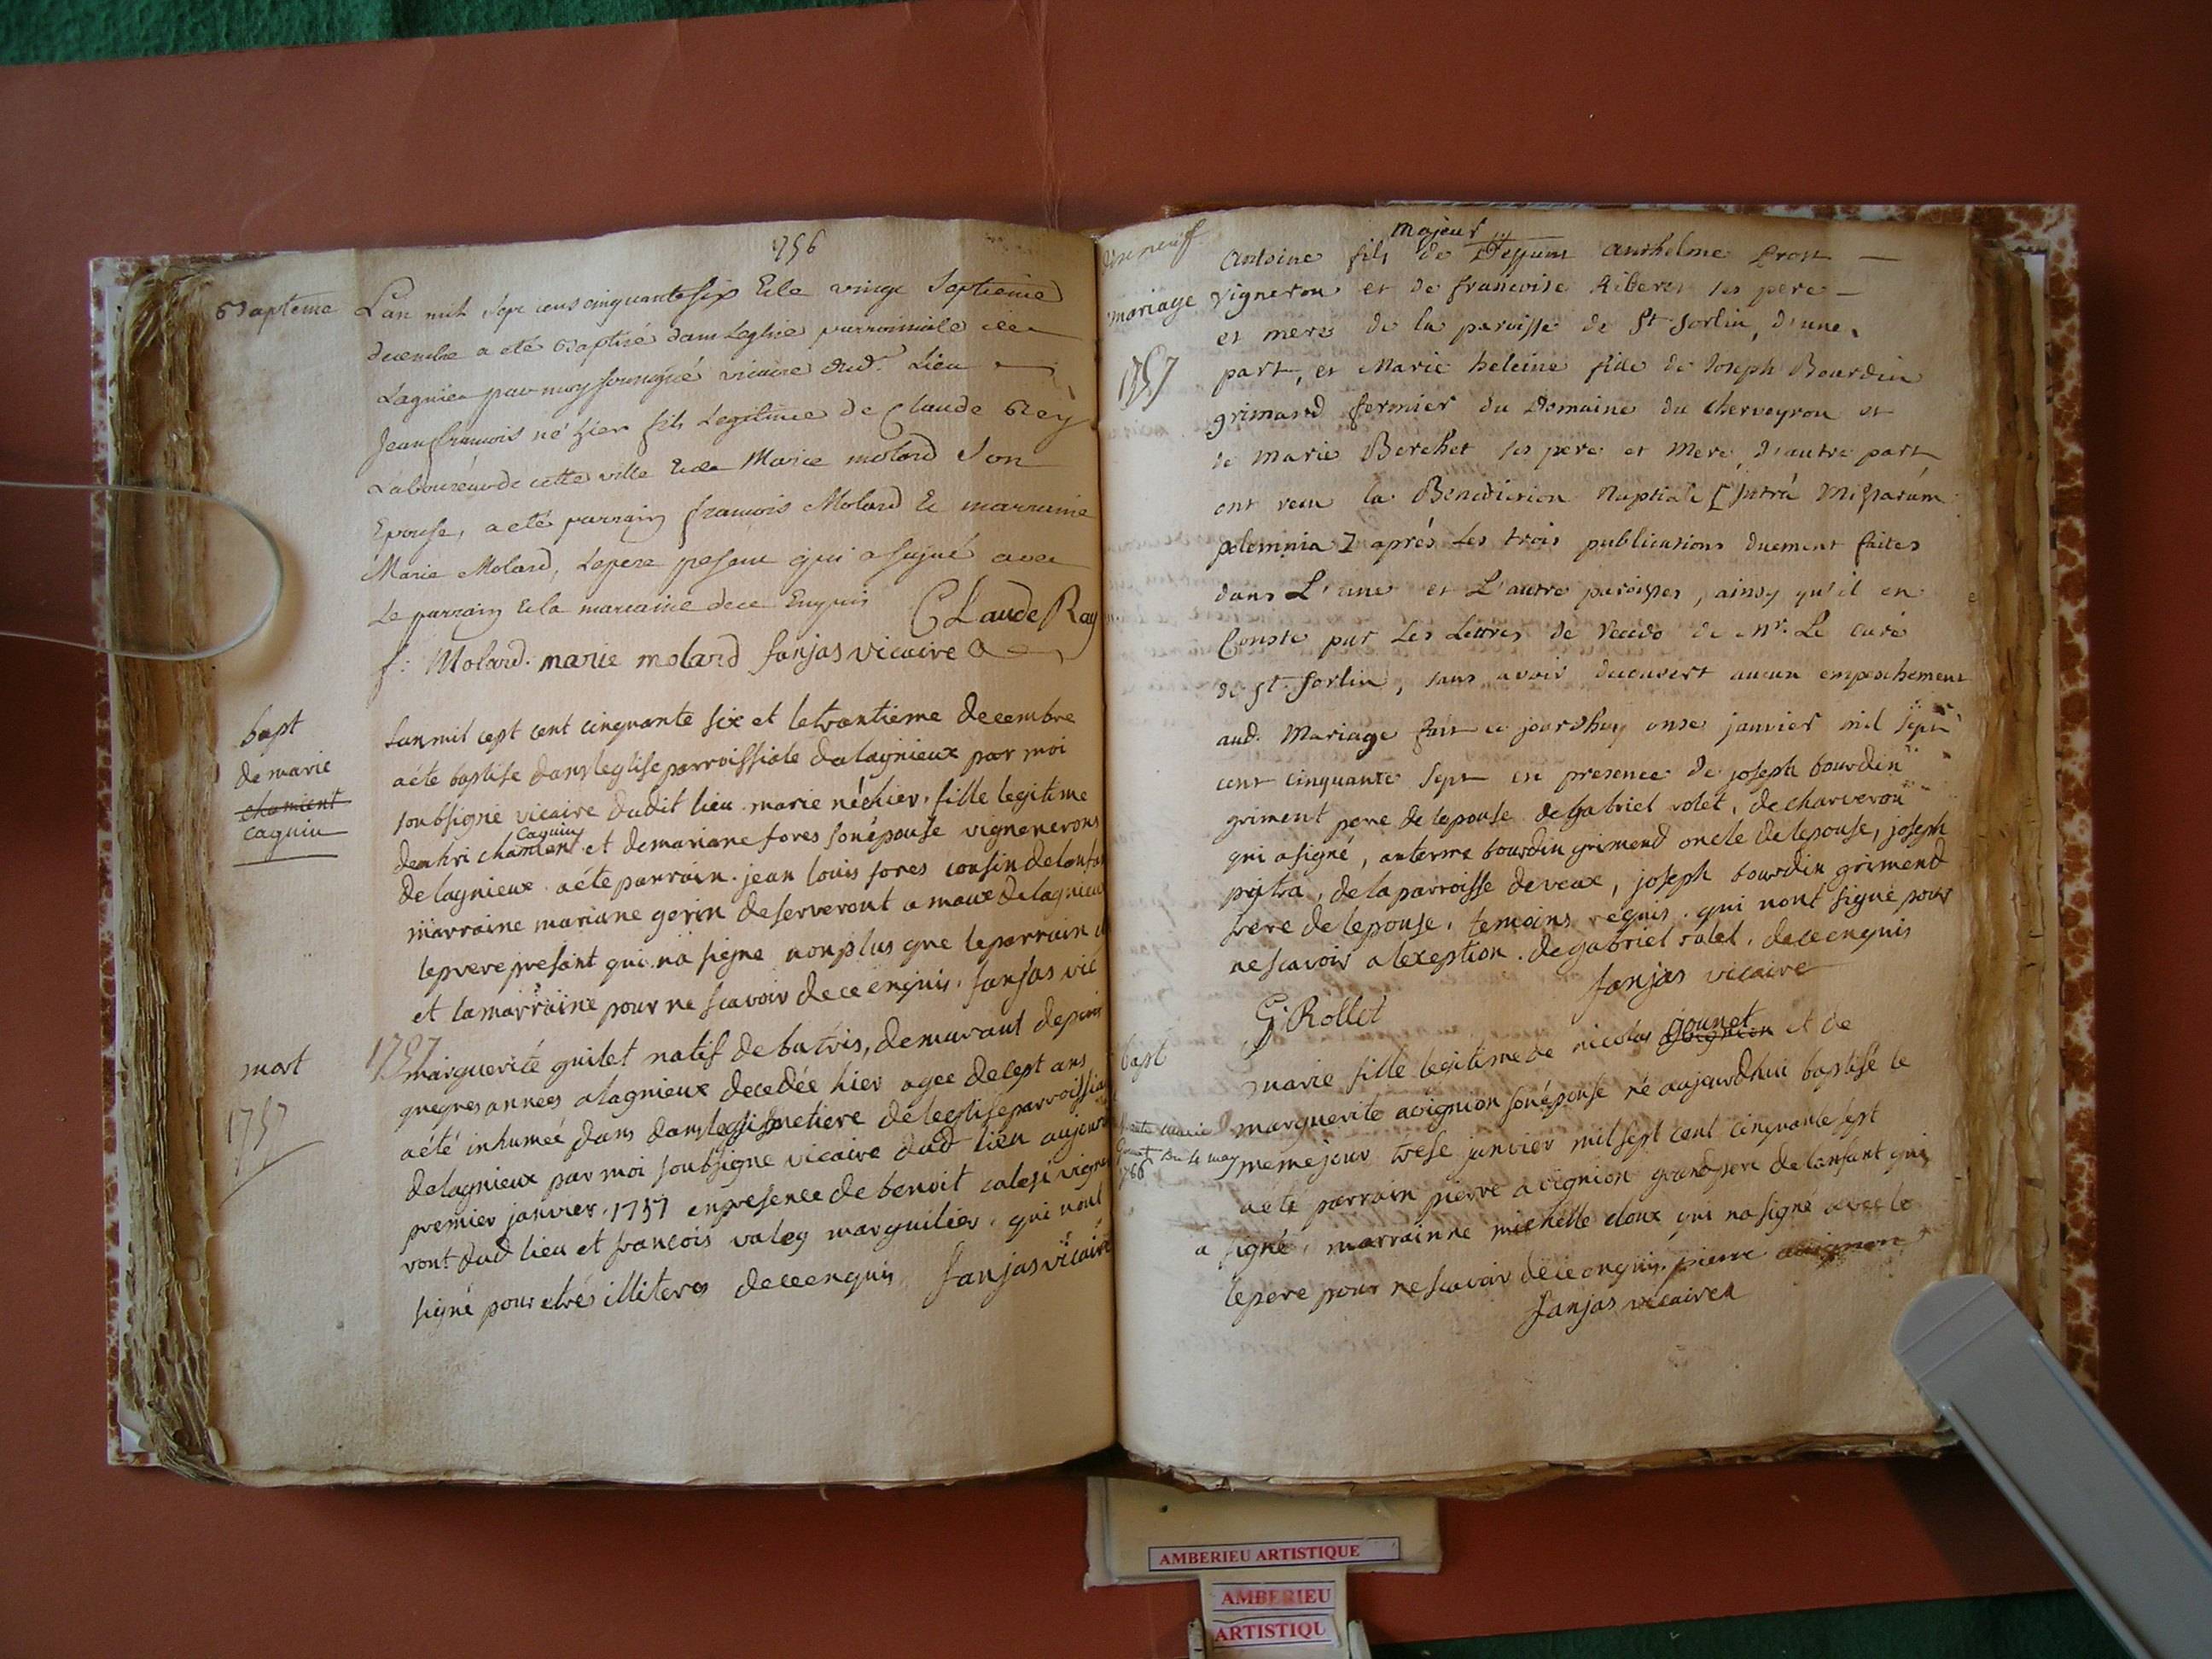 1756
Bapteme
L'an mil sept cens cinquante six & le vingt septieme
decembre a eté Baptisé dans L'eglise parroissiale de
Lagnieu par moy soussigné vicaire dud. Lieu
Jean françois né hier fils Legitime de Claude Rey
Laboureur de cette ville & de Marie molard son
Epouse, a eté parrain françois Molard & marraine
Marie Molard, Le pere present qui a signé avec
Le parrain & la marraine de ce Enquis Claude Ray
f: Molard. marie molard fanjas vicaire
bapt
de marie
chamient
caguin
Lan mil cept cent cinquante six et le trantieme decembre
a éte baptise dans leglise parroissiale de lagnieux par moi
soubsigné vicaire dudit lieu marie né hier, fille legitime
caguin
denhri chamient et de mariane fores son épouse vignenerons
de lagnieux a éte parrain jean louis fores cousin de lenfan
marraine mariane gerin de serveront a maux de lagnieux
le pere presant qui na signe non plus que le parrain
et la marraine pour ne scavoir de ce enquis. fanjas vic
mort
1757
1757
marguerite guilet natif de batris, demurant depuis
queques annees a lagnieux decedée hier agee de cept ans
a été inhumeé dans dans le simetiere de leeglise parroissia
de lagnieux par moi soubsigne vicaire dud lieu aujourd
premier janvier. 1757 en presence de benoit calesi vigne
ront dud lieu et francois valey marguilier, qui nont
signé pour etres illiteres de ce enquis fanjas vicaire
majeur
mariage
1757
Antoine fils de Deffunt Anthelme Prost
vigneron et de francoise Ribere ses pere
et mere de la paroisse de St Sorlin, d'une
part, et Marie heleine fille de Joseph Bourdin
grimand fermier du Domaine du cherveyron et
de Marie Berchet ses pere et Mere, d'autre part
ont recu la Benediction Nuptiale [intrà Missarúm
solemnia] aprés Les trois publications duement faites
dans L'une et L'autre paroisses, ainsy qu'il en
Conste par Les Lettres de Recedo de Mr. Le curé
de St. Sorlin, sans avoir decouvert aucun empeschement
aud. Mariage fait ce jourdhuy onse janvier mil sept
cent cinquante sept en presence de joseph bourdin
griment pere de lepouse de gabriel rolet, de charveron
qui a signé, anterme bourdin grimend oncle de lepouse, joseph
pitra, de la parroisse de veax, joseph bourdin grimend
frere de lepouse, temoins requis. qui nont signe pour
ne scavoir a lexeption. de gabriel rolet, de ce enquis
fanjas vicaire
G. Rollet
bapt
gounet
marie fille legitime de nicolas et de
marguerite avignion son épouse né aujourdhui baptisé le
meme jour trese janvier mil sept cent cinquante sept
a éte parrain pierre avignion grand pere de lenfant qui
a signé, marrainne michelle cloux qui na signé avec le
le pere pour ne scavoir de ce enquis. pierre avignion
fanjas vicaire
AMBERIEU ARTISTIQUE
AMBERIEU
ARTISTIQU